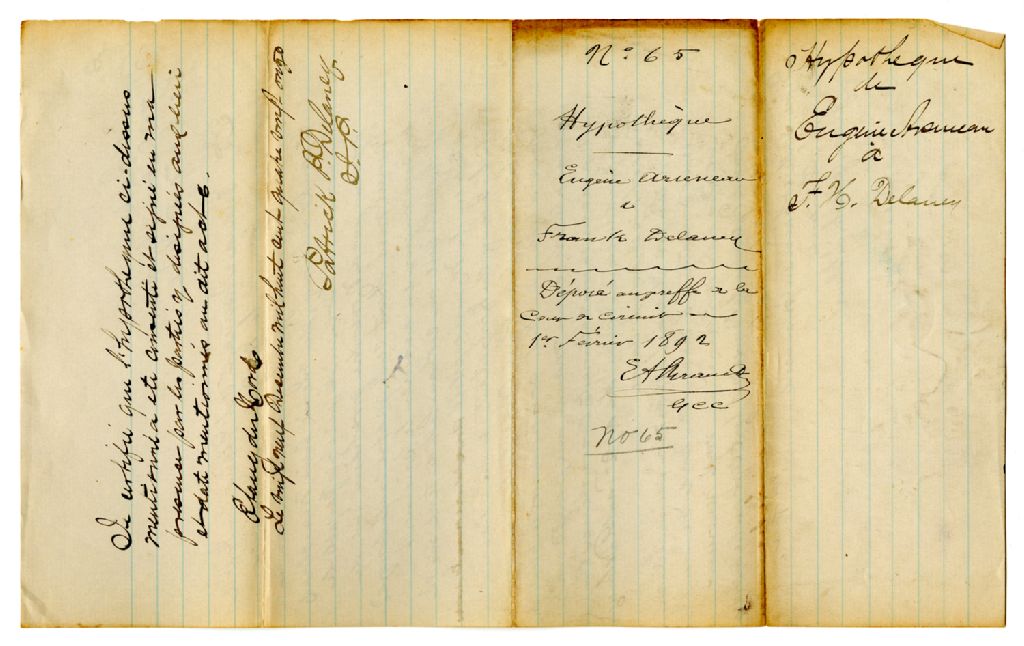 Je certifie que l'hypotheque ci-dessus
mentionné a été consenti et signé en ma
présence par les parties y désignés aux lieu
et date mentionnés au dit acte.
Etang du Nord
Le vingt neuf Decembre mil huit cent quatre vingt onze
Patrick P. Delaney
J. P.
No 65
Hypothèque
Eugène Arseneau
à
Frank Delaney
Déposé au greffe de la
Cour de circuit
1er Février 1892
GCC
No 65
Hypotheque
de
Eugène Arseneau
à
F. H. Delaney